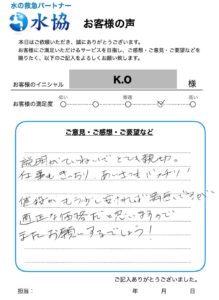 水の救急パートナー
水協 お客様の声
本日はご依頼いただき、誠にありがとうございます。
お客様にご満足いただけるサービスを目指し、ご感想・ご意見・ご要望などを
賜りたく、以下のご記入をよろしくお願い致します。
お客様のイニシャル K.O 様
お客様の満足度 低い 普通 高い
ご意見・ご感想・ご要望など
説明がていねいで とても親切。
仕事もきっちり あいさつもバッチリ!
値段が もう少し安ければ 最高ですが、
適正な価格だと思いますので
またお願いするでしょう!
ご記入ありがとうございました。
担当: 年 月 日